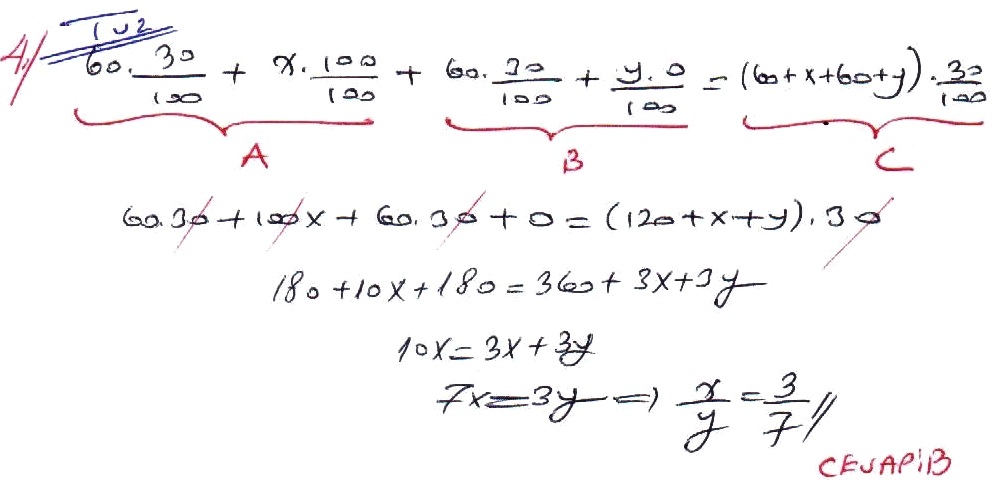 4/ Tuz
60 . 30/100 + x . 100/100 + 60 . 30/100 + y . 0/100 = (60+x+60+y) . 30/100
A B C
60.30 + 100x + 60.30 + 0 = (120+x+y).30
180 + 10x + 180 = 360 + 3x + 3y
10x = 3x + 3y
7x = 3y => x/y = 3/7 //
CEVAP:B